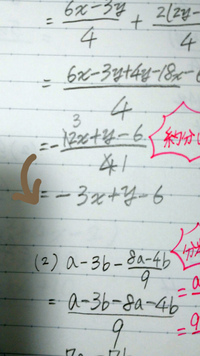 = 6x-3y/4 + 2(2y-
= 6x-3y+4y-18x-6/4
= -12x+y-6/4 3 1 約分し
= -3x+y-6
(2) a-3b-8a-4b/9
= a-3b-8a-4b/9